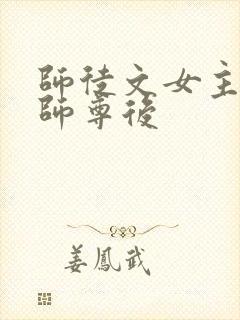 師徒文女主
師尊後
姜鳳武